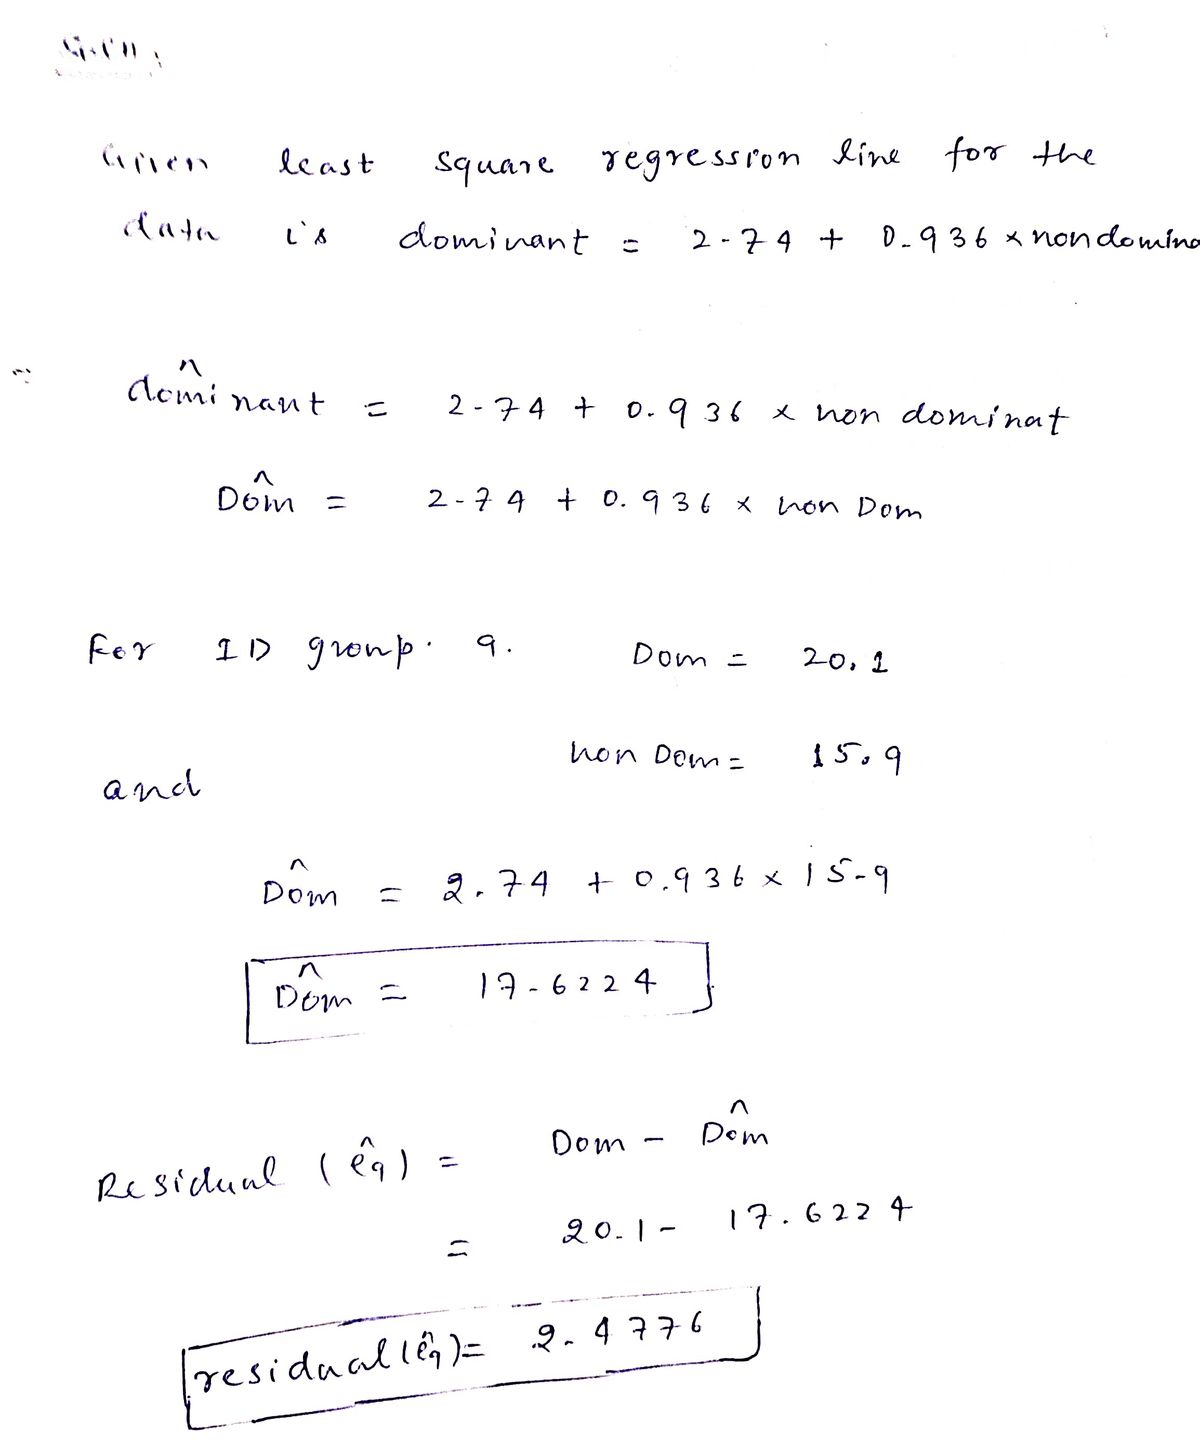 Given least square regression line for the
data is dominant = 2.74 + 0.936 × nondomina
domi^nant = 2.74 + 0.936 × non dominat
Dom^ = 2.74 + 0.936 × non Dom
For ID group. 9. Dom = 20.1
non Dom = 15.9
and
Dom^ = 2.74 + 0.936 × 15.9
Dom^ = 17.6224
Residual (ê9) = Dom - Dom^
= 20.1 - 17.6224
residual (ê9) = 2.4776